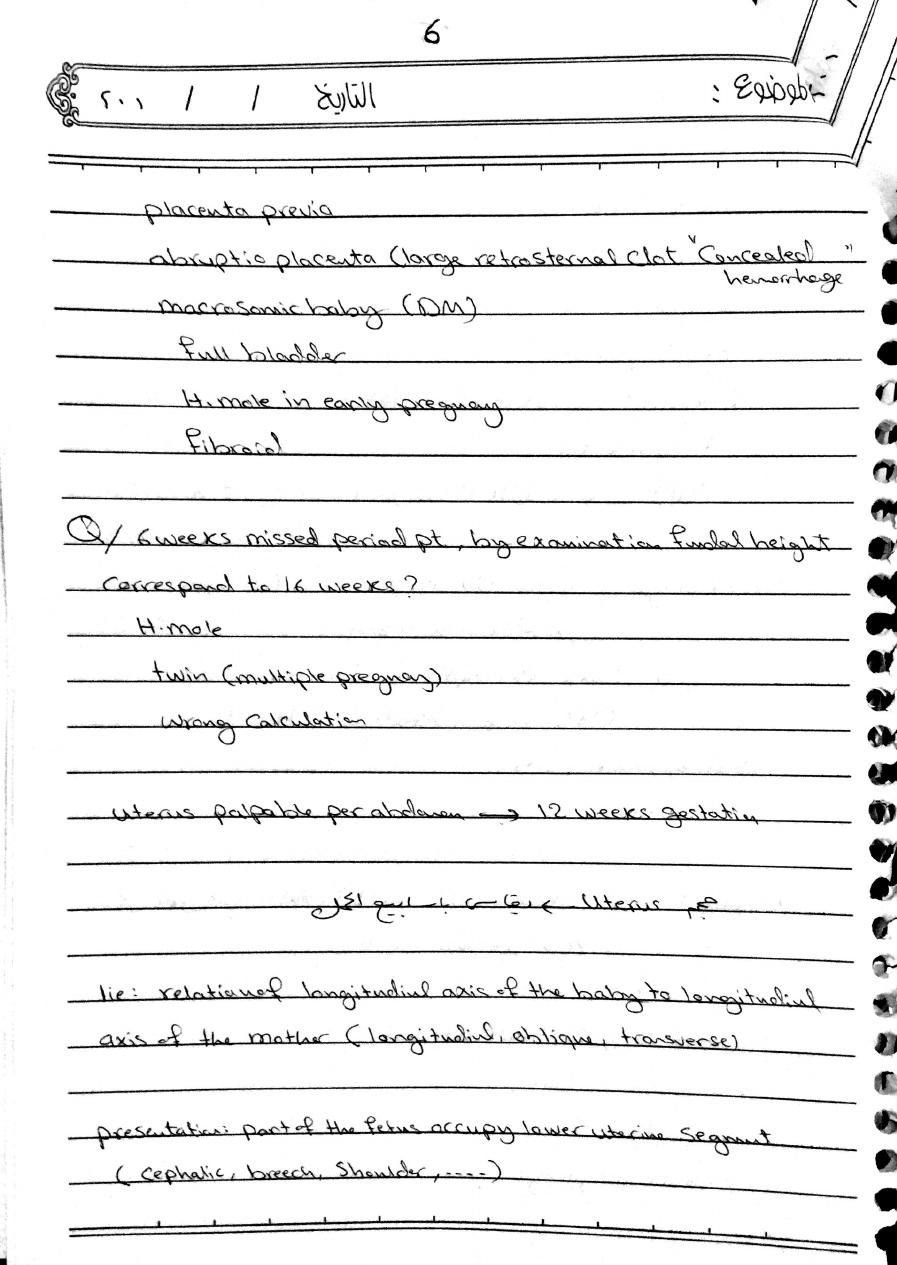 6
الموضوع : التاريخ / / ٢٠٠١
placenta previa
abruptio placenta (large retrosternal clot "Concealed hemorrhage"
macrosomic baby (DM)
full bladder
H. mole in early pregnancy
fibroid
Q/ 6 weeks missed period pt, by examination fundal height
correspond to 16 weeks?
H. mole
twin (multiple pregnancy)
wrong calculation
uterus palpable per abdomen → 12 weeks gestation
حجم uterus ← يقاس بأسابيع الحمل
lie: relation of longitudinal axis of the baby to longitudinal
axis of the mother (longitudinal, oblique, transverse)
presentation: part of the fetus occupy lower uterine segment
(cephalic, breech, shoulder, .....)